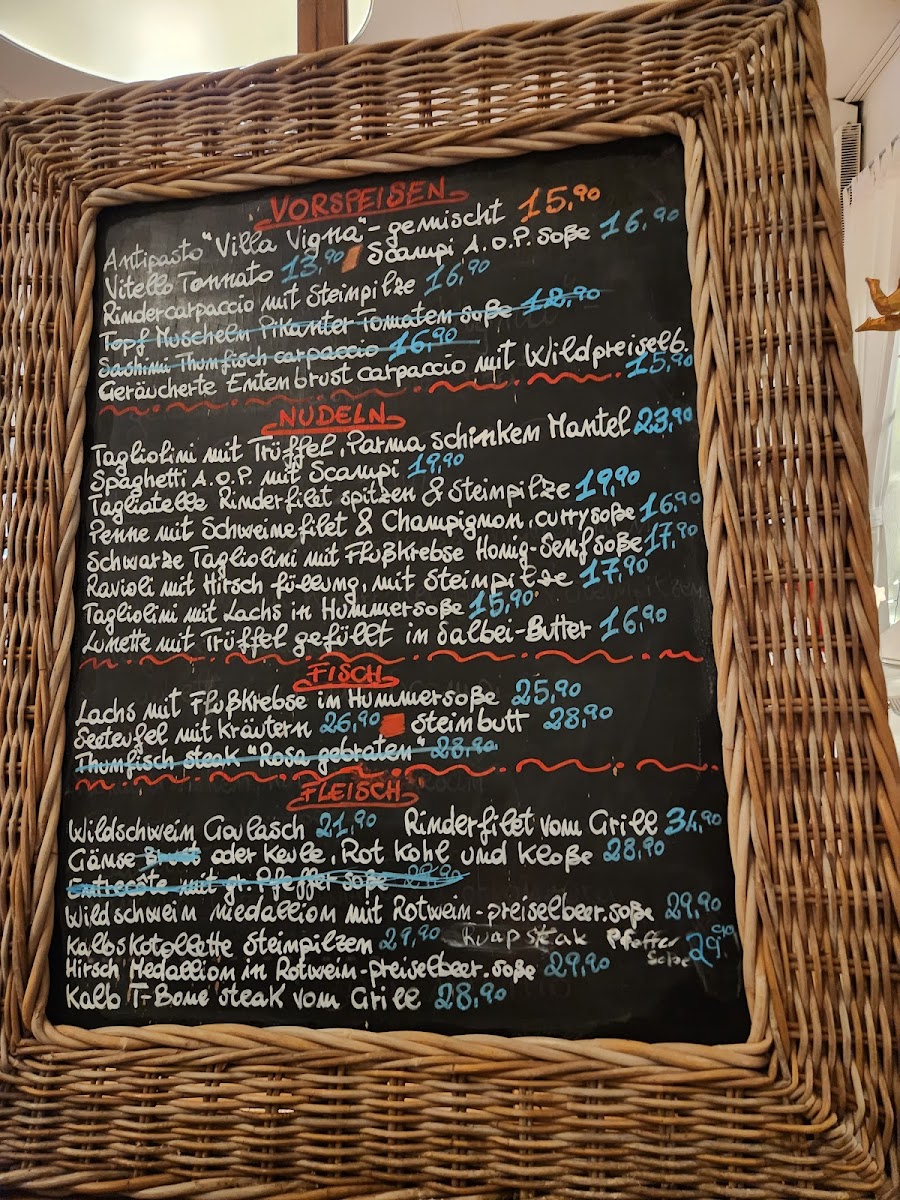 VORSPEISEN
Antipasto "Villa Vigna"- gemischt 15,90
Vitello Tonnato 13,90 Scampi A.O.P. Soße 16,90
Rindercarpaccio mit Steinpilze 16,90
Topf Muscheln Pikanter Tomaten soße 18,90
Sashimi Thunfisch carpaccio 16,90
Geräucherte Entenbrust carpaccio mit Wildpreiselb. 15,90
NUDELN
Tagliolini mit Trüffel, Parma schinken Mantel 23,90
Spaghetti A.O.P. mit Scampi 19,90
Tagliatelle Rinderfilet spitzen & Steinpilze 19,90
Penne mit Schweinefilet & Champignon, currysoße 16,90
Schwarze Tagliolini mit Flußkrebse Honig-Senf soße 17,90
Ravioli mit Hirsch füllung, mit Steinpilze 17,90
Tagliolini mit Lachs in Hummersoße 15,90
Lunette mit Trüffel gefüllt in Salbei-Butter 16,90
FISCH
Lachs mit Flußkrebse in Hummersoße 25,90
Seeteufel mit Kräutern 26,90 Steinbutt 28,90
Thunfisch steak "Rosa gebraten" 28,90
FLEISCH
Wildschwein Goulasch 21,90 Rinderfilet vom Grill 34,90
Gänse oder Keule, Rot Kohl und Kloße 28,90
Entrecôte mit gr. Pfeffer soße 29,90
Wildschwein Medallion mit Rotwein-preiselbeer.soße 29,90
Kalbskotollette Steinpilzen 29,90 Ruap steak Pfeffer Soße 29,90
Hirsch Medallion in Rotwein-preiselbeer.soße 29,90
Kalb T-Bone steak vom Grill 28,90